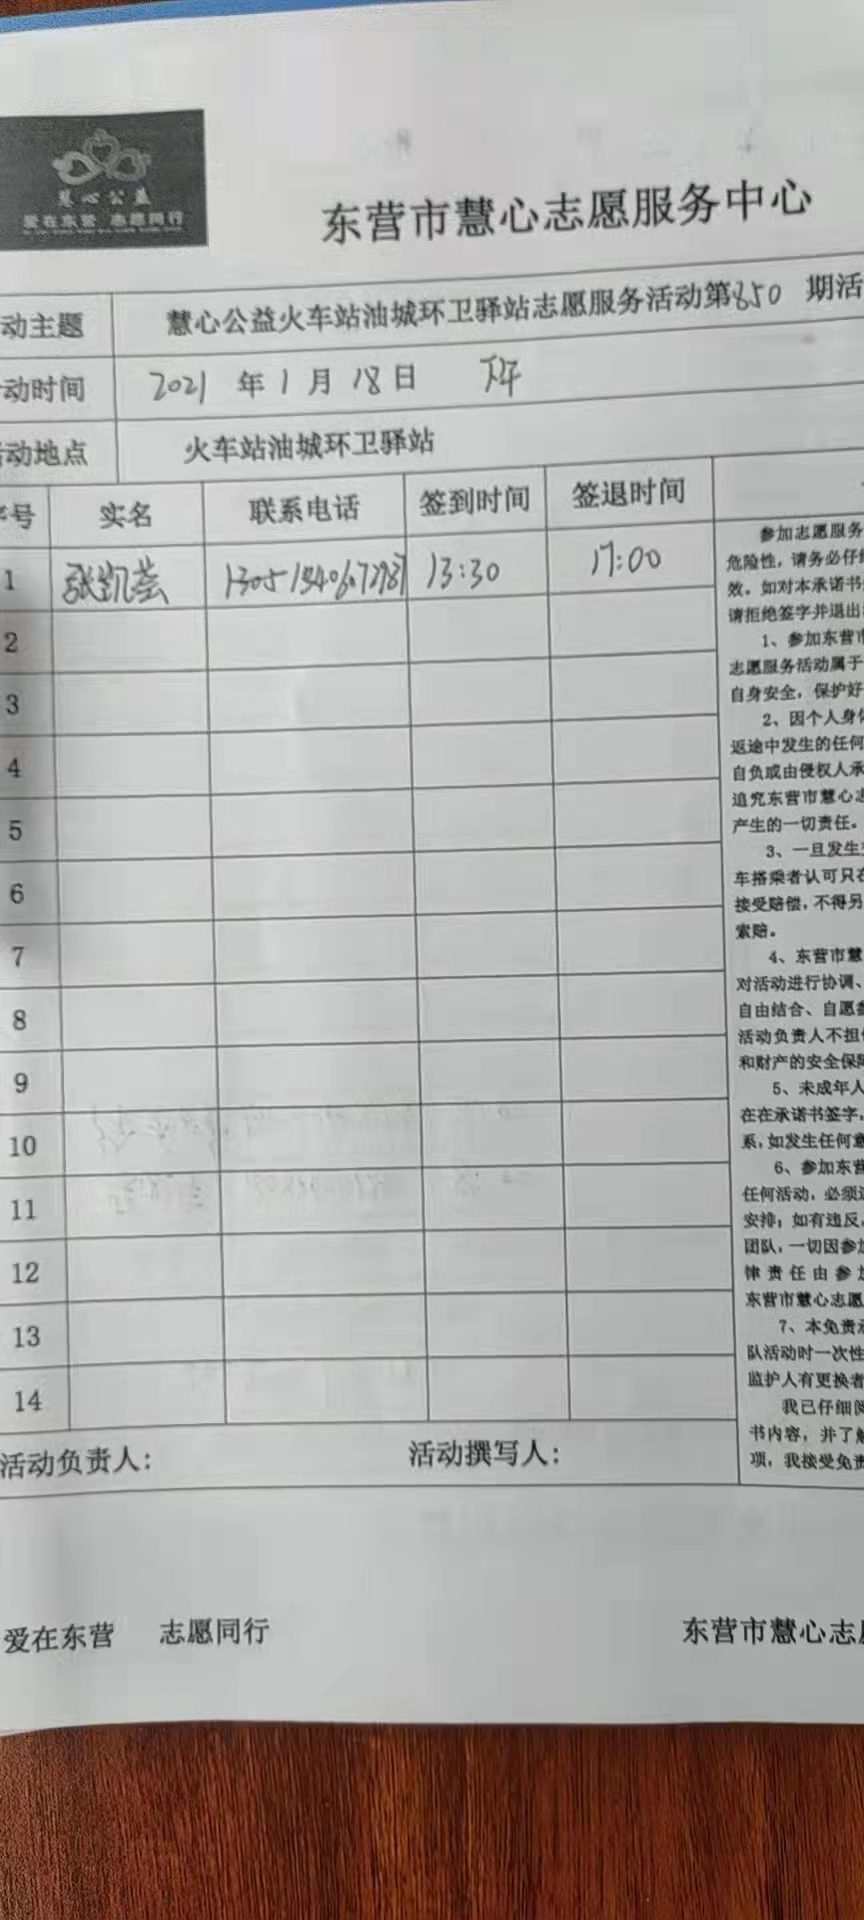 慧心公益
爱在东营 志愿同行
东营市慧心志愿服务中心
动主题 慧心公益火车站油城环卫驿站志愿服务活动第850 期活
动时间 2021 年 1 月 18 日 下午
动地点 火车站油城环卫驿站
序号 实名 联系电话 签到时间 签退时间
1 张凯芸 13:30 17:00
2
3
4
5
6
7
8
9
10
11
12
13
14
参加志愿服务
危险性，请务必仔细
效。如对本承诺书
请拒绝签字并退出
1、参加东营市
志愿服务活动属于
自身安全，保护好
2、因个人身体
返途中发生的任何
自负或由侵权人承
追究东营市慧心志
产生的一切责任。
3、一旦发生
车搭乘者认可只在
接受赔偿，不得另
索赔。
4、东营市慧
对活动进行协调、
自由结合、自愿参
活动负责人不担任
和财产的安全保障
5、未成年人
在在承诺书签字，
系，如发生任何意
6、参加东营
任何活动，必须
安排；如有违反，
团队，一切因参加
律责任由参加
东营市慧心志愿
7、本免责承
队活动时一次性
监护人有更换者
我已仔细阅
书内容，并了解
项，我接受免责
活动负责人： 活动撰写人：
爱在东营 志愿同行 东营市慧心志愿